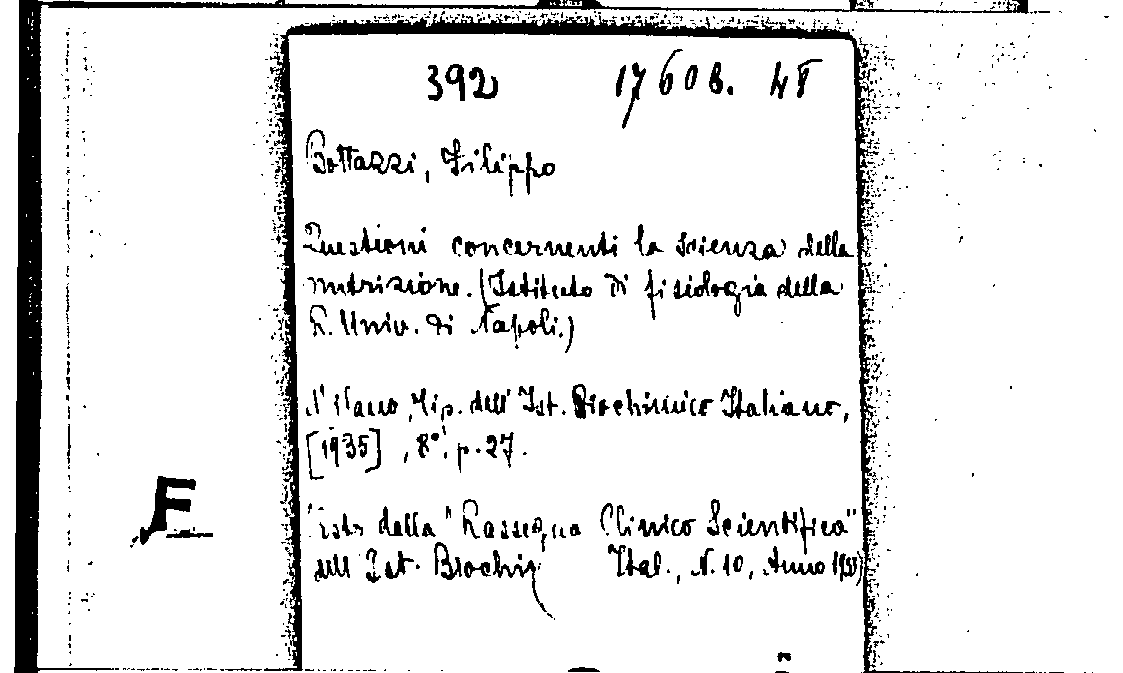 392 17608. 48
Bottazzi, Filippo
Questioni concernenti la scienza della
nutrizione. (Istituto di fisiologia della
R. Univ. di Napoli.)
Milano, Tip. dell' Ist. Biochimico Italiano,
[1935], 8°, p. 27.
F
della "Rassegna Clinico Scientifica"
dell' Ist. Biochim Ital., N. 10, Anno 1935)